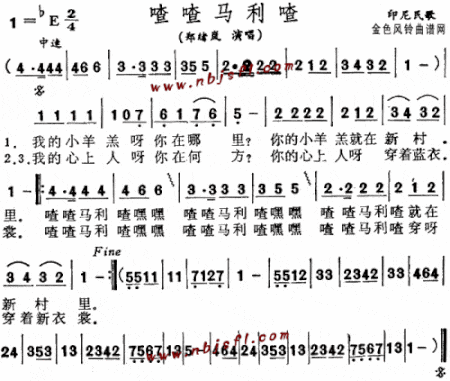 喳喳马利喳
1=♭E 2/4
印尼民歌
中速
(郑绪岚 演唱)
金色风铃曲谱网
(4·444 | 466 | 3·333 | 355 | 2·222 | 212 | 3432 | 1-)
www.nbjsfl.com
1111 | 107 | 6176 | 5- | 2222 | 212 | 3432
1. 我的小羊 羔呀你在哪 里? 你的小羊 羔就在 新村.
2.3.我的心上 人呀你在何 方? 你的心上 人呀 穿着蓝衣.
1- :4·444 | 466 | 3·333 | 355 | 2·222 | 212
里. 喳喳马利 喳嘿嘿 喳喳马利 喳嘿嘿 喳喳马利 喳就在
裳. 喳喳马利 喳嘿嘿 喳喳马利 喳嘿嘿 喳喳马利 喳穿呀
Fine
3432 | 1- :(5511 | 11 | 7127 | 1- | 5512 | 33 | 2342 | 33 | 464
新村 里.
穿着新衣 裳.
24 | 353 | 13 | 2342 | 7567 | 135 | 464 | 24 | 353 | 13 | 2342 | 7567 | 13 | 1-)
www.nbjsfl.com